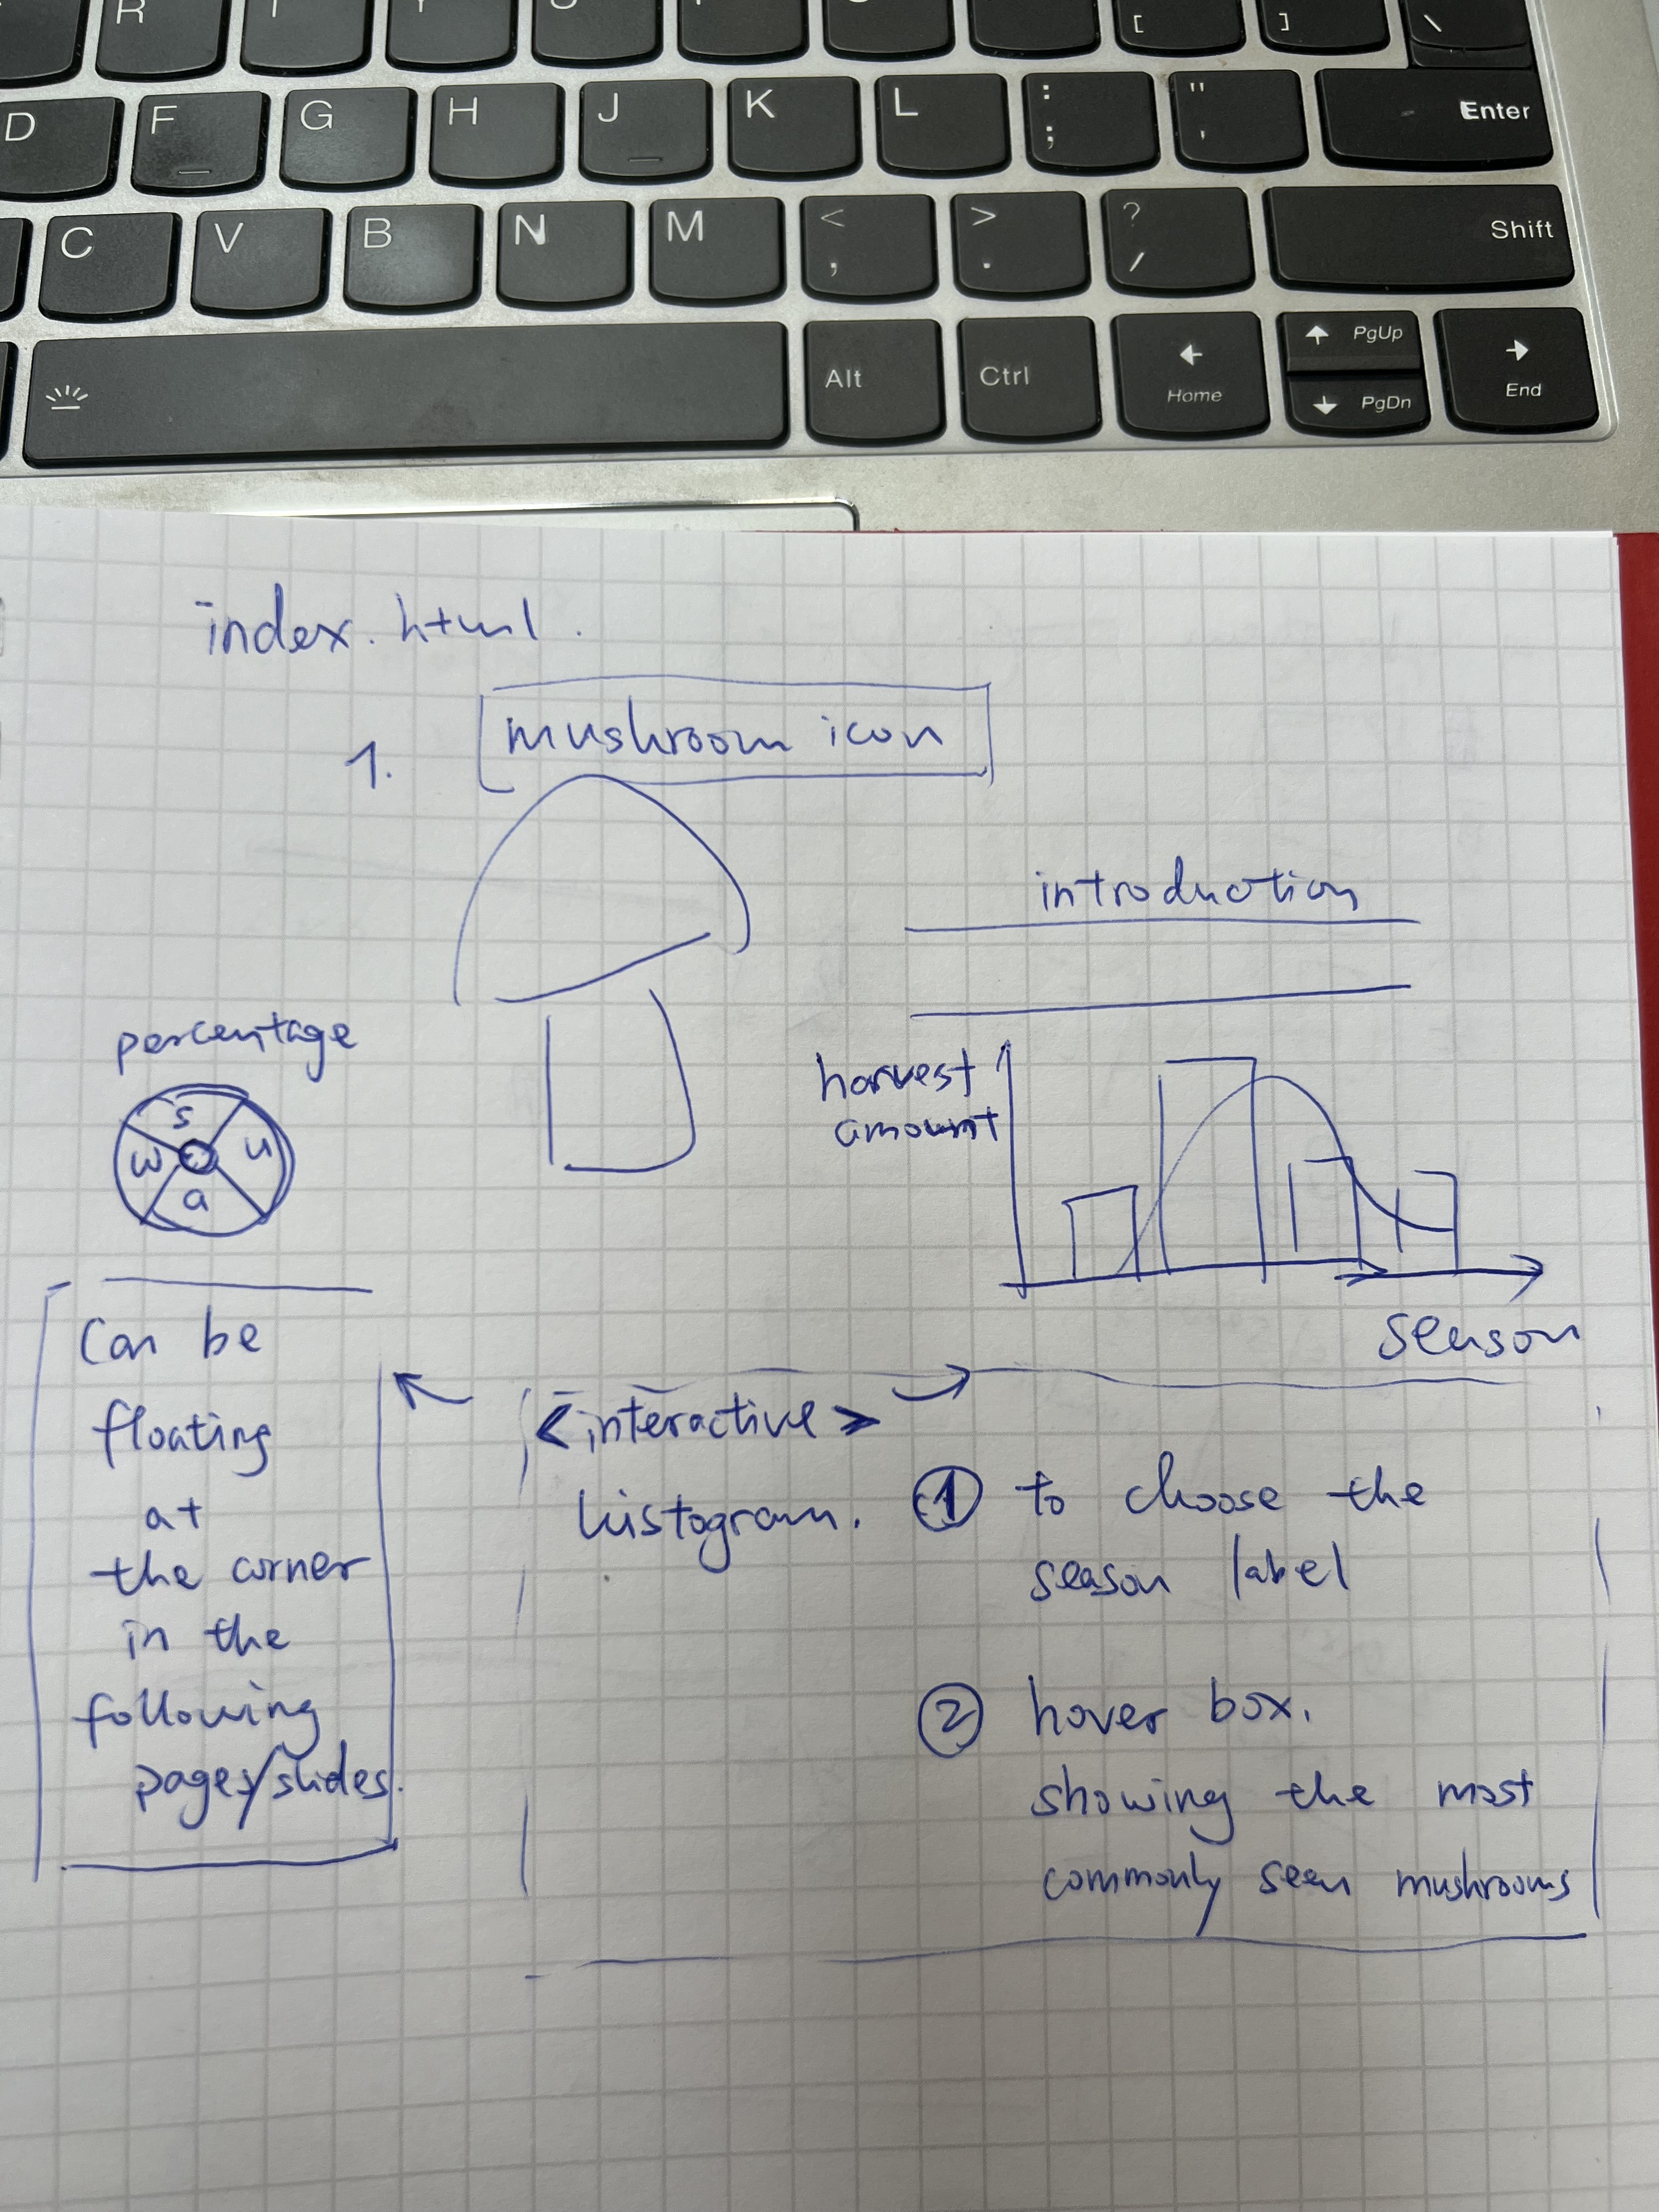 R T Y [ ] \
D F G H J K L : ; " ' Enter
C V B N M < , > . ? / Shift
Alt Ctrl Home PgUp PgDn End
index.html.
1. mushroom icon
introduction
percentage
s
w u
a
harvest
amount
season
Can be
floating
at
the corner
in the
following
pages/slides.
<interactive>
histogram.
① to choose the
season label
② hover box.
showing the most
commonly seen mushrooms